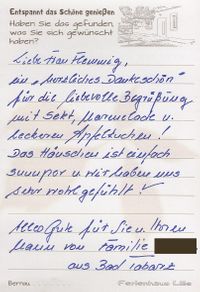 Entspannt das Schöne genießen
Haben Sie das gefunden,
was Sie sich gewünscht
haben?
Liebe Frau Flemmig,
ein "herzliches Dankeschön"
für die liebevolle Begrüßung
mit Sekt, Marmelade u.
leckeren Apfelkuchen!
Das Häuschen ist einfach
suuuper u. wir haben uns
sehr wohl gefühlt!
Alles Gute für Sie u. Ihren
Mann von Familie
aus Bad Tabarz
Bernau
Ferienhaus Lille